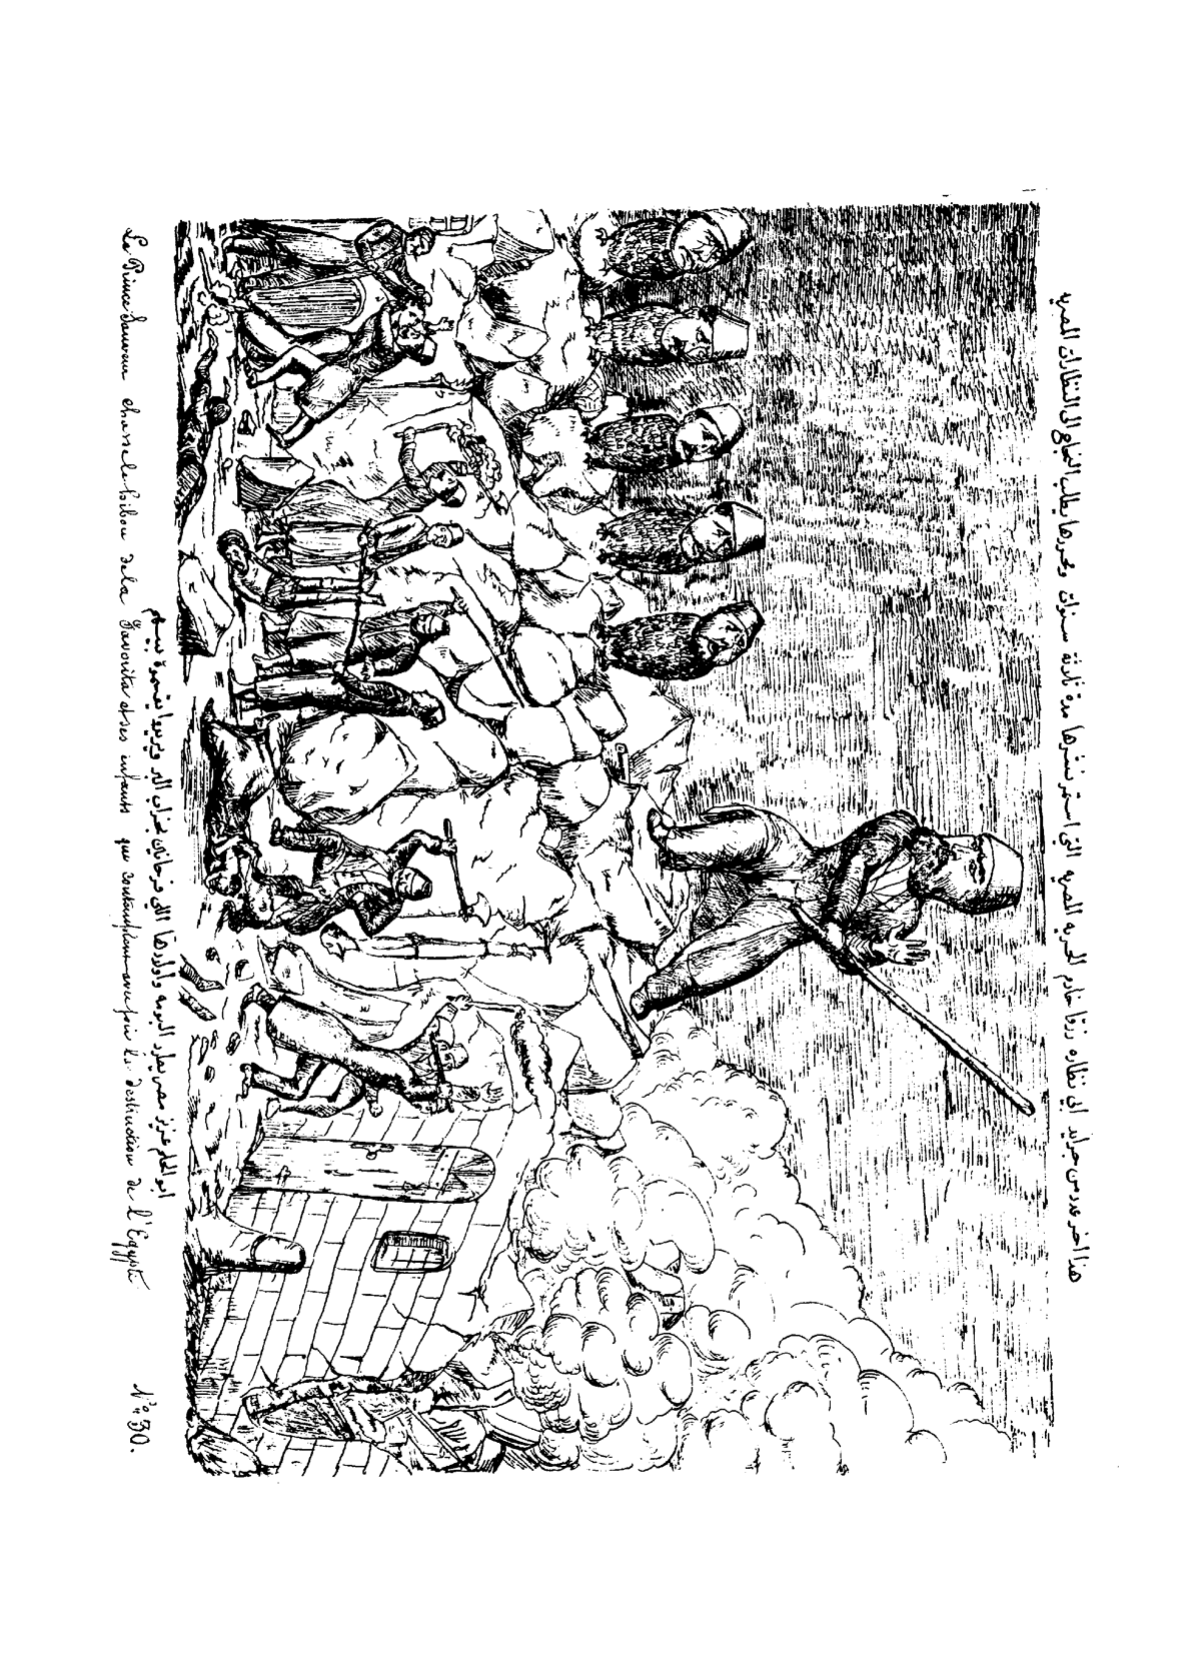 هذا اخر عدد من جرايد ابي نظاره زرقا خادم الحريه المصريه التى استمر نشرها مدة ثلاثة سنوات ومحررها يطلب النجاح الى النظارات المصريه
ابو الحلم عزيز مصر يطرد البومه واولادها اللى فرحانين بخراب البر
Le Prince Sauveur chasse le hibou de la Favorita et ses enfants qui contemplent avec joie la destruction de l'Egypte
Nº 30.